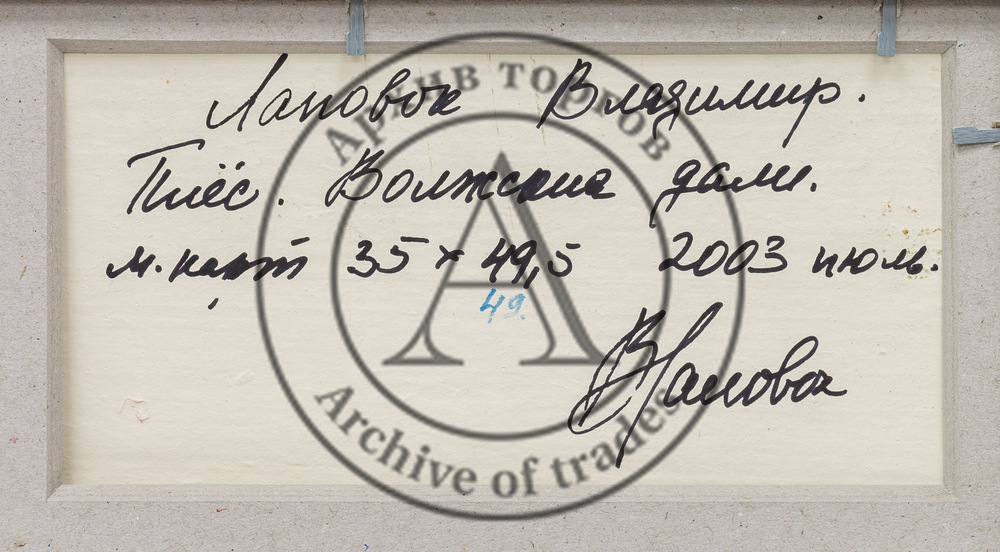 Лаповок Владимир.
Плёс. Волжские дали.
м. карт 35 х 49,5 2003 июль.
49.
ВЛаповок
Архив торгов
Archive of trades